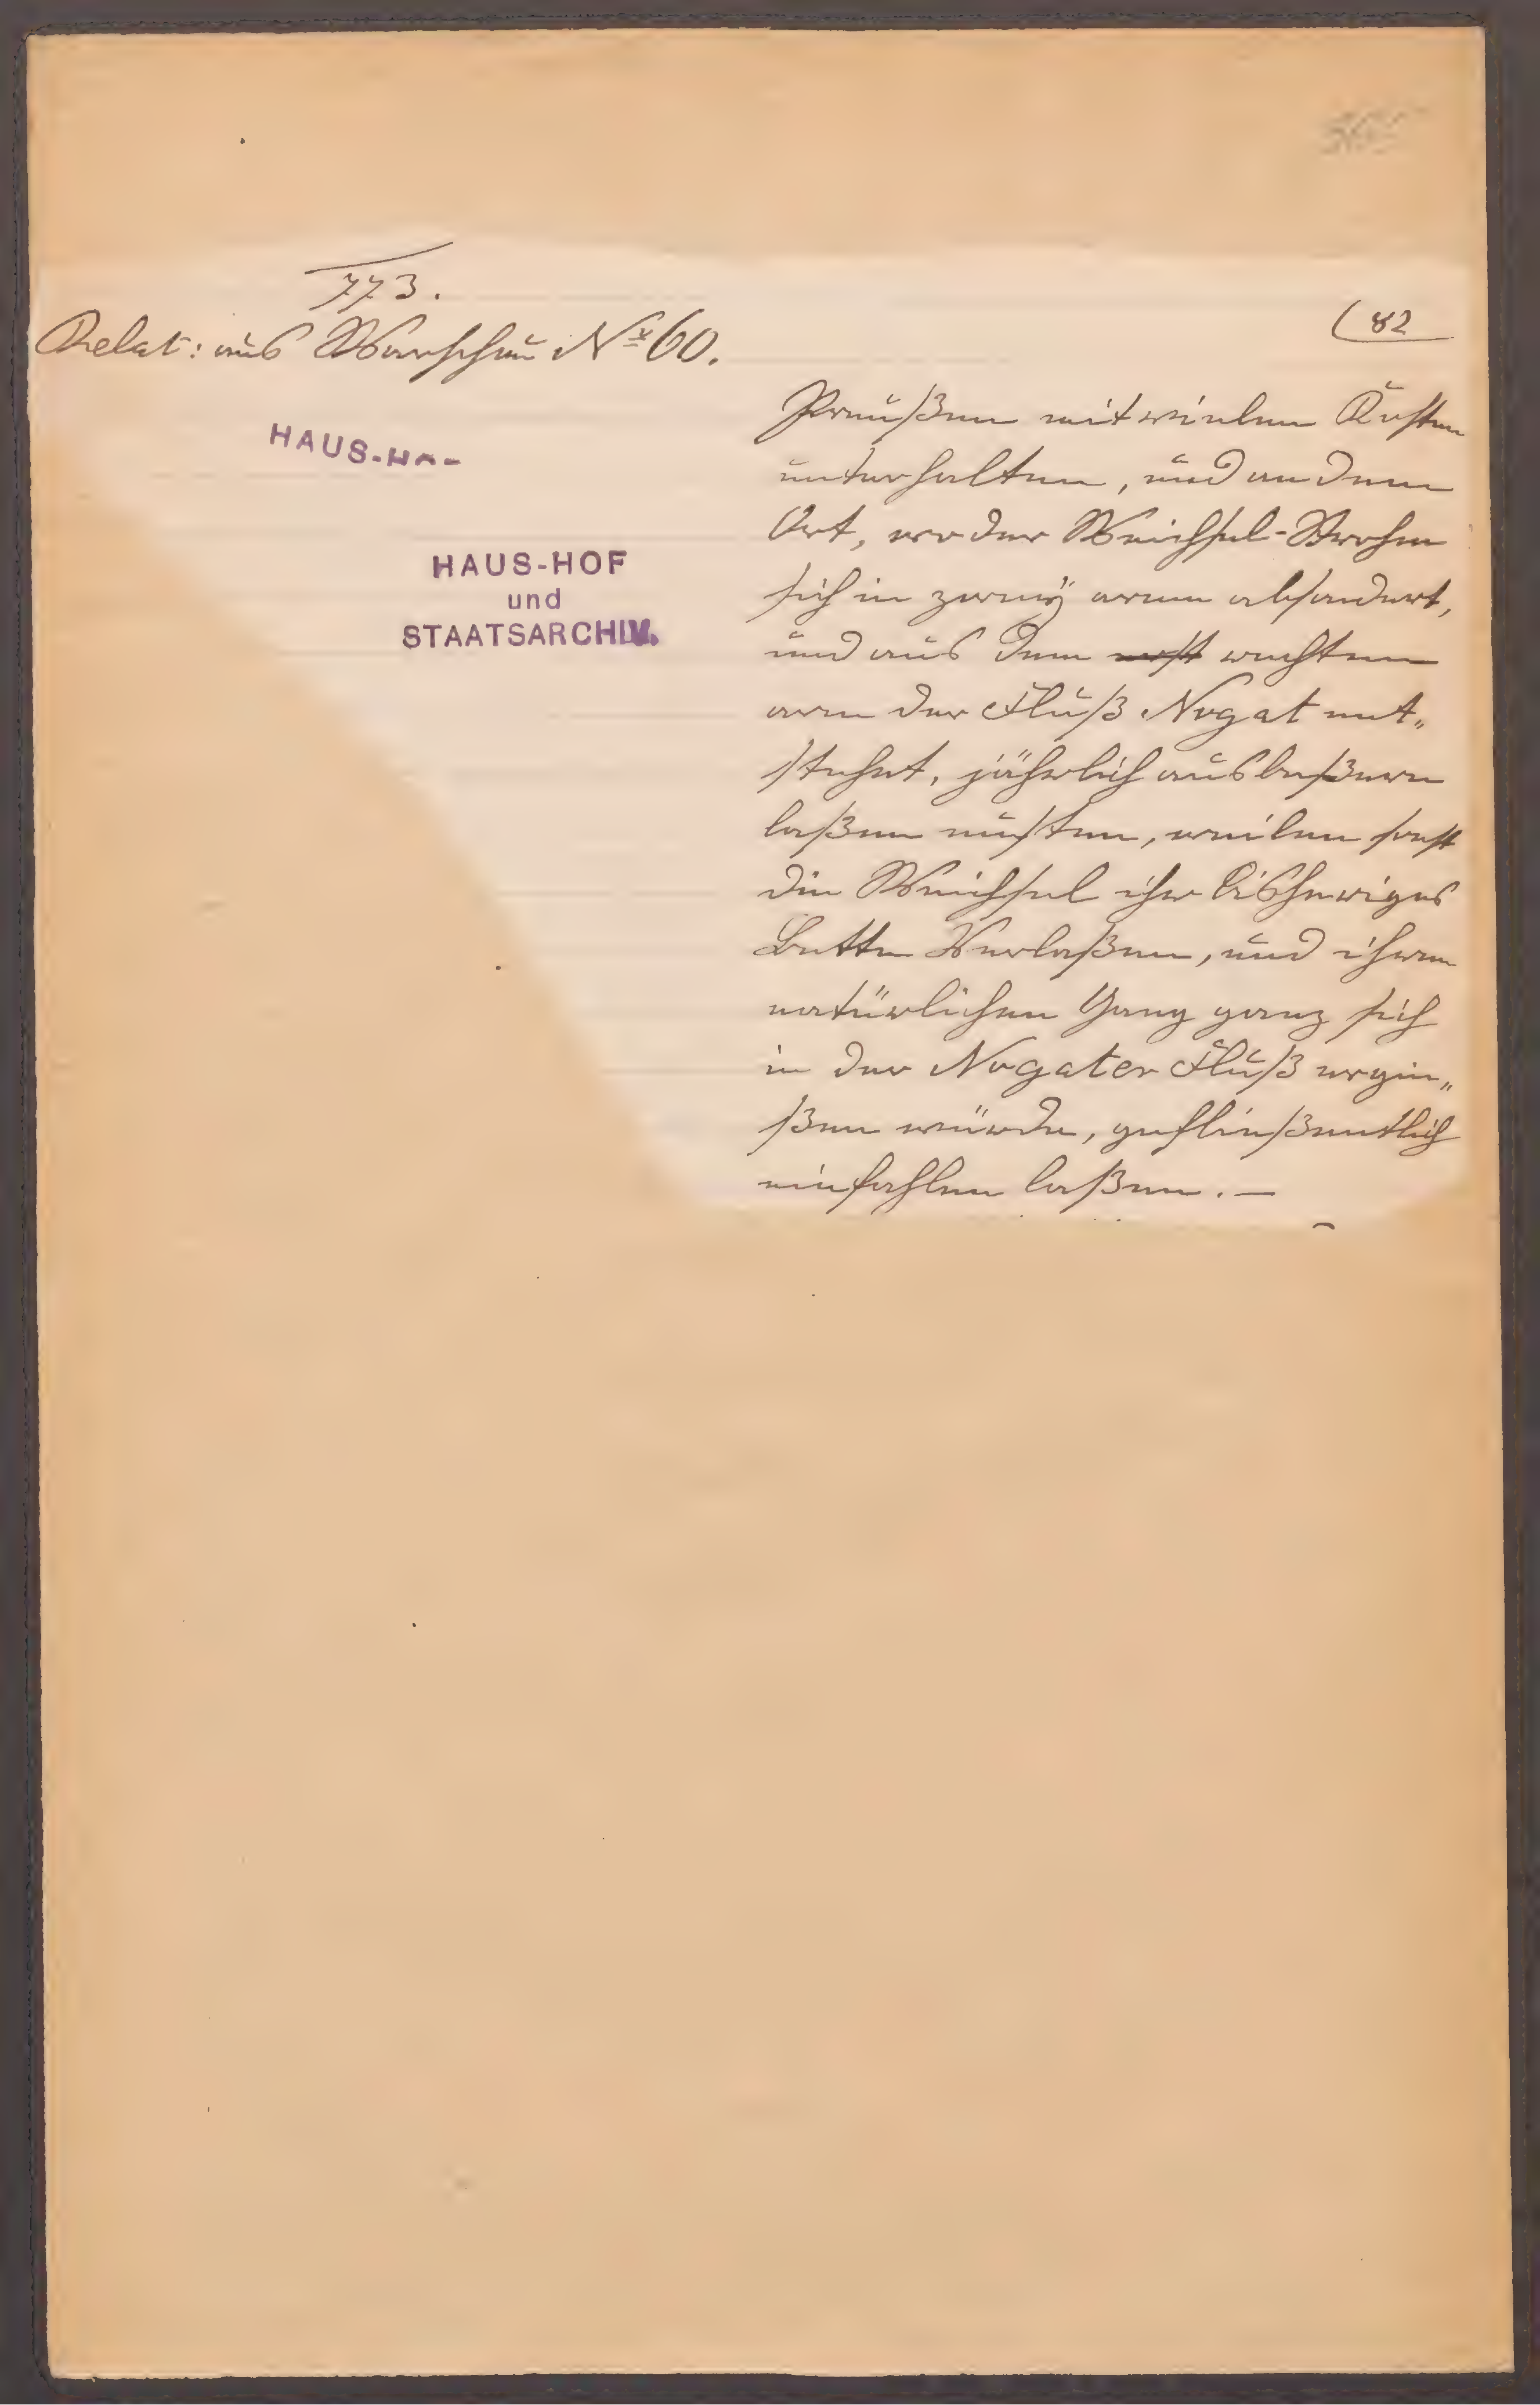 773.
Relat: aus Warschau No 60.
(82
HAUS-HO-
HAUS-HOF
und
STAATSARCHIV.
Preußen mit vielen Kosten
unterhalten, und an dem
Ort, wo der Weichsel-Strohm
sich in zweÿ arme absondert,
und aus dem rechten
arm der Fluß Nogat ent„
stehet, jährlich ausbeßern
laßen müsten, weilen sonst
die Weichsel ihr bisheriges
Bette Verlaßen, und ihren
natürlichen Gang ganz sich
in der Nogater Fluß ergie„
ßen würde, gefließentlich
einfahlen laßen. —